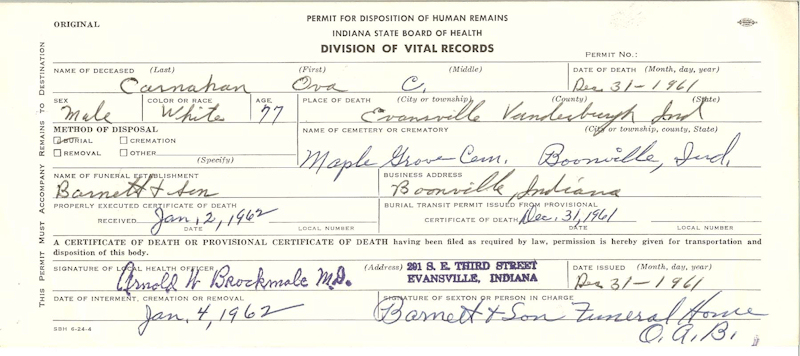 ORIGINAL
PERMIT FOR DISPOSITION OF HUMAN REMAINS
INDIANA STATE BOARD OF HEALTH
DIVISION OF VITAL RECORDS
PERMIT NO.:
THIS PERMIT MUST ACCOMPANY REMAINS TO DESTINATION
NAME OF DECEASED (Last) (First) (Middle) DATE OF DEATH (Month, day, year)
Carnahan Ova C. Dec 31-1961
SEX COLOR OR RACE AGE PLACE OF DEATH (City or township) (County) (State)
Male White 77 Evansville Vanderburgh Ind
METHOD OF DISPOSAL NAME OF CEMETERY OR CREMATORY (City or township, county, State)
BURIAL CREMATION
REMOVAL OTHER
(Specify)
Maple Grove Cem. Boonville, Ind.
NAME OF FUNERAL ESTABLISHMENT BUSINESS ADDRESS
Barnett & Son Boonville, Indiana
PROPERLY EXECUTED CERTIFICATE OF DEATH BURIAL TRANSIT PERMIT ISSUED FROM PROVISIONAL
RECEIVED Jan. 2, 1962 CERTIFICATE OF DEATH Dec. 31, 1961
DATE LOCAL NUMBER DATE LOCAL NUMBER
A CERTIFICATE OF DEATH OR PROVISIONAL CERTIFICATE OF DEATH having been filed as required by law, permission is hereby given for transportation and
disposition of this body.
SIGNATURE OF LOCAL HEALTH OFFICER (Address) 291 S. E. THIRD STREET DATE ISSUED (Month, day, year)
Arnold W Brockmole M.D. EVANSVILLE, INDIANA Dec 31-1961
DATE OF INTERMENT, CREMATION OR REMOVAL SIGNATURE OF SEXTON OR PERSON IN CHARGE
Jan. 4, 1962 Barnett & Son Funeral Home
O.A.B.
SBH 6-24-4